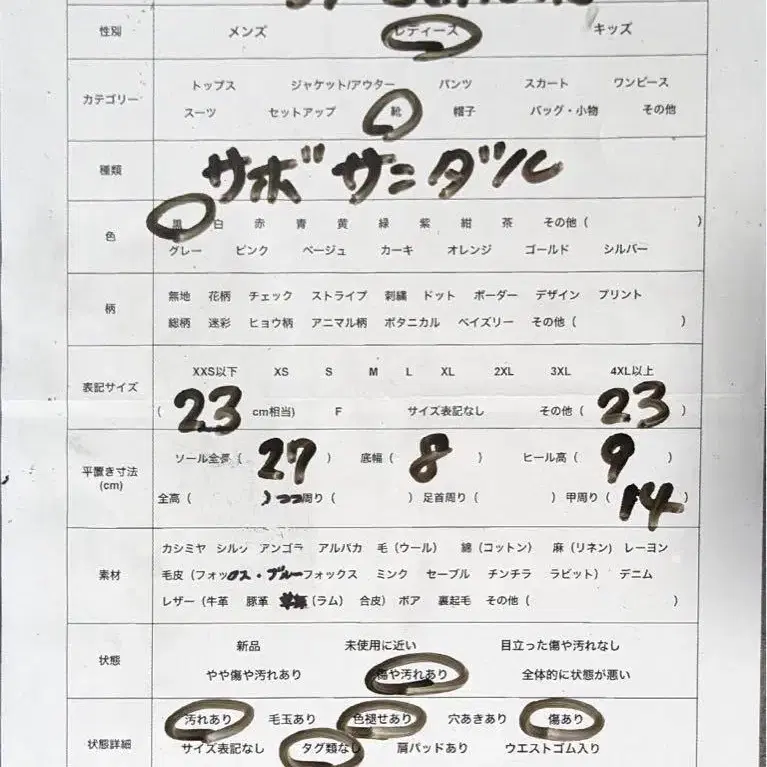 性別 メンズ レディース キッズ
カテゴリー
トップス ジャケット/アウター パンツ スカート ワンピース
スーツ セットアップ 靴 帽子 バッグ・小物 その他
種類 サボサンダル
色
黒 白 赤 青 黄 緑 紫 紺 茶 その他 ( )
グレー ピンク ベージュ カーキ オレンジ ゴールド シルバー
柄
無地 花柄 チェック ストライプ 刺繍 ドット ボーダー デザイン プリント
総柄 迷彩 ヒョウ柄 アニマル柄 ボタニカル ペイズリー その他 ( )
表記サイズ
XXS以下 XS S M L XL 2XL 3XL 4XL以上
( 23 cm相当) F サイズ表記なし その他 ( 23 )
平置き寸法
(cm)
ソール全長 ( 27 ) 底幅 ( 8 ) ヒール高 ( 9 )
全高 ( ) 周り ( ) 足首周り ( ) 甲周り ( 14 )
素材
カシミヤ シルク アンゴラ アルパカ 毛 (ウール) 綿 (コットン) 麻 (リネン) レーヨン
毛皮 (フォックス・ブルーフォックス ミンク セーブル チンチラ ラビット) デニム
レザー (牛革 豚革 (ラム) 合皮) ボア 裏起毛 その他 ( )
状態
新品 未使用に近い 目立った傷や汚れなし
やや傷や汚れあり 傷や汚れあり 全体的に状態が悪い
状態詳細
汚れあり 毛玉あり 色褪せあり 穴あきあり 傷あり
サイズ表記なし タグ類なし 肩パッドあり ウエストゴム入り